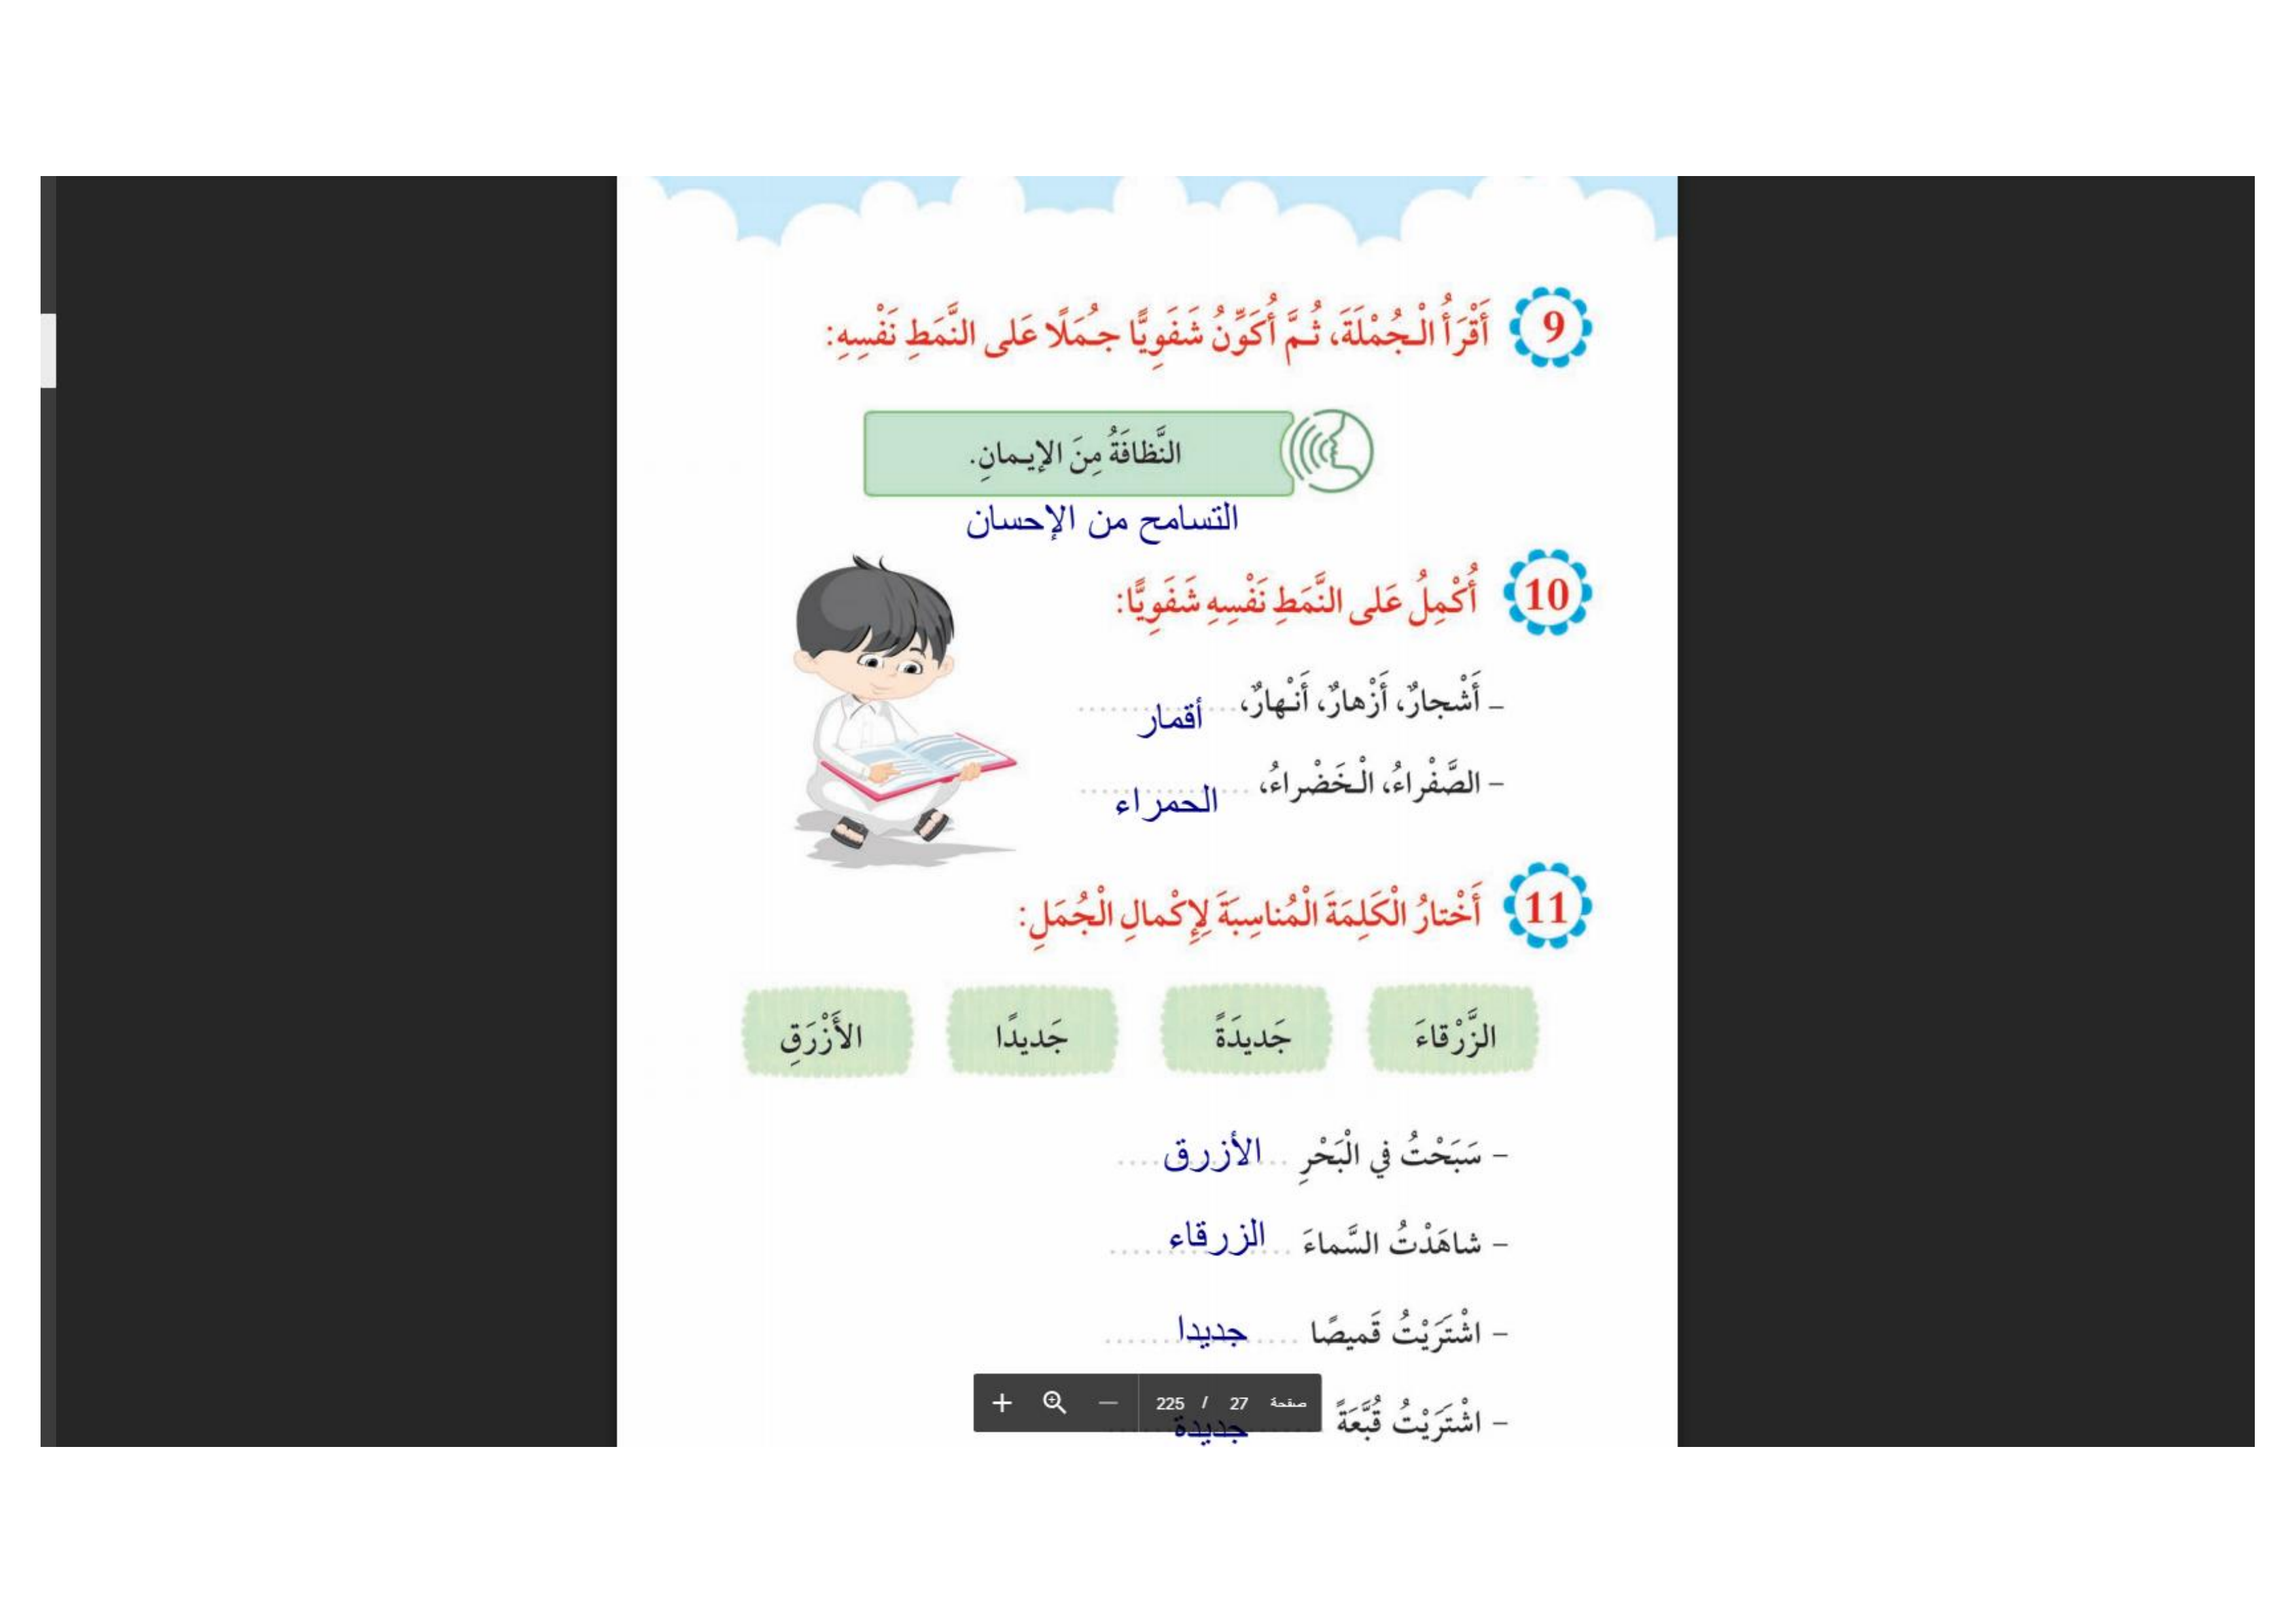 9 أَقْرَأُ الْجُمْلَةَ، ثُمَّ أُكَوِّنُ شَفَوِيًّا جُمَلًا عَلى النَّمَطِ نَفْسِهِ:
النَّظافَةُ مِنَ الإيمانِ.
التسامح من الإحسان
10 أُكْمِلُ عَلى النَّمَطِ نَفْسِهِ شَفَوِيًّا:
– أَشْجارٌ، أَزْهارٌ، أَنْهارٌ، أقمار
– الصَّفْراءُ، الْخَضْراءُ، الحمراء
11 أَخْتارُ الْكَلِمَةَ الْمُناسِبَةَ لِإِكْمالِ الْجُمَلِ:
الزَّرْقاءَ جَديدَةً جَديدًا الأَزْرَقِ
– سَبَحْتُ في الْبَحْرِ الأزرق
– شاهَدْتُ السَّماءَ الزرقاء
– اشْتَرَيْتُ قَميصًا جديدا
– اشْتَرَيْتُ قُبَّعَةً جديدة
صفحة 27 / 225